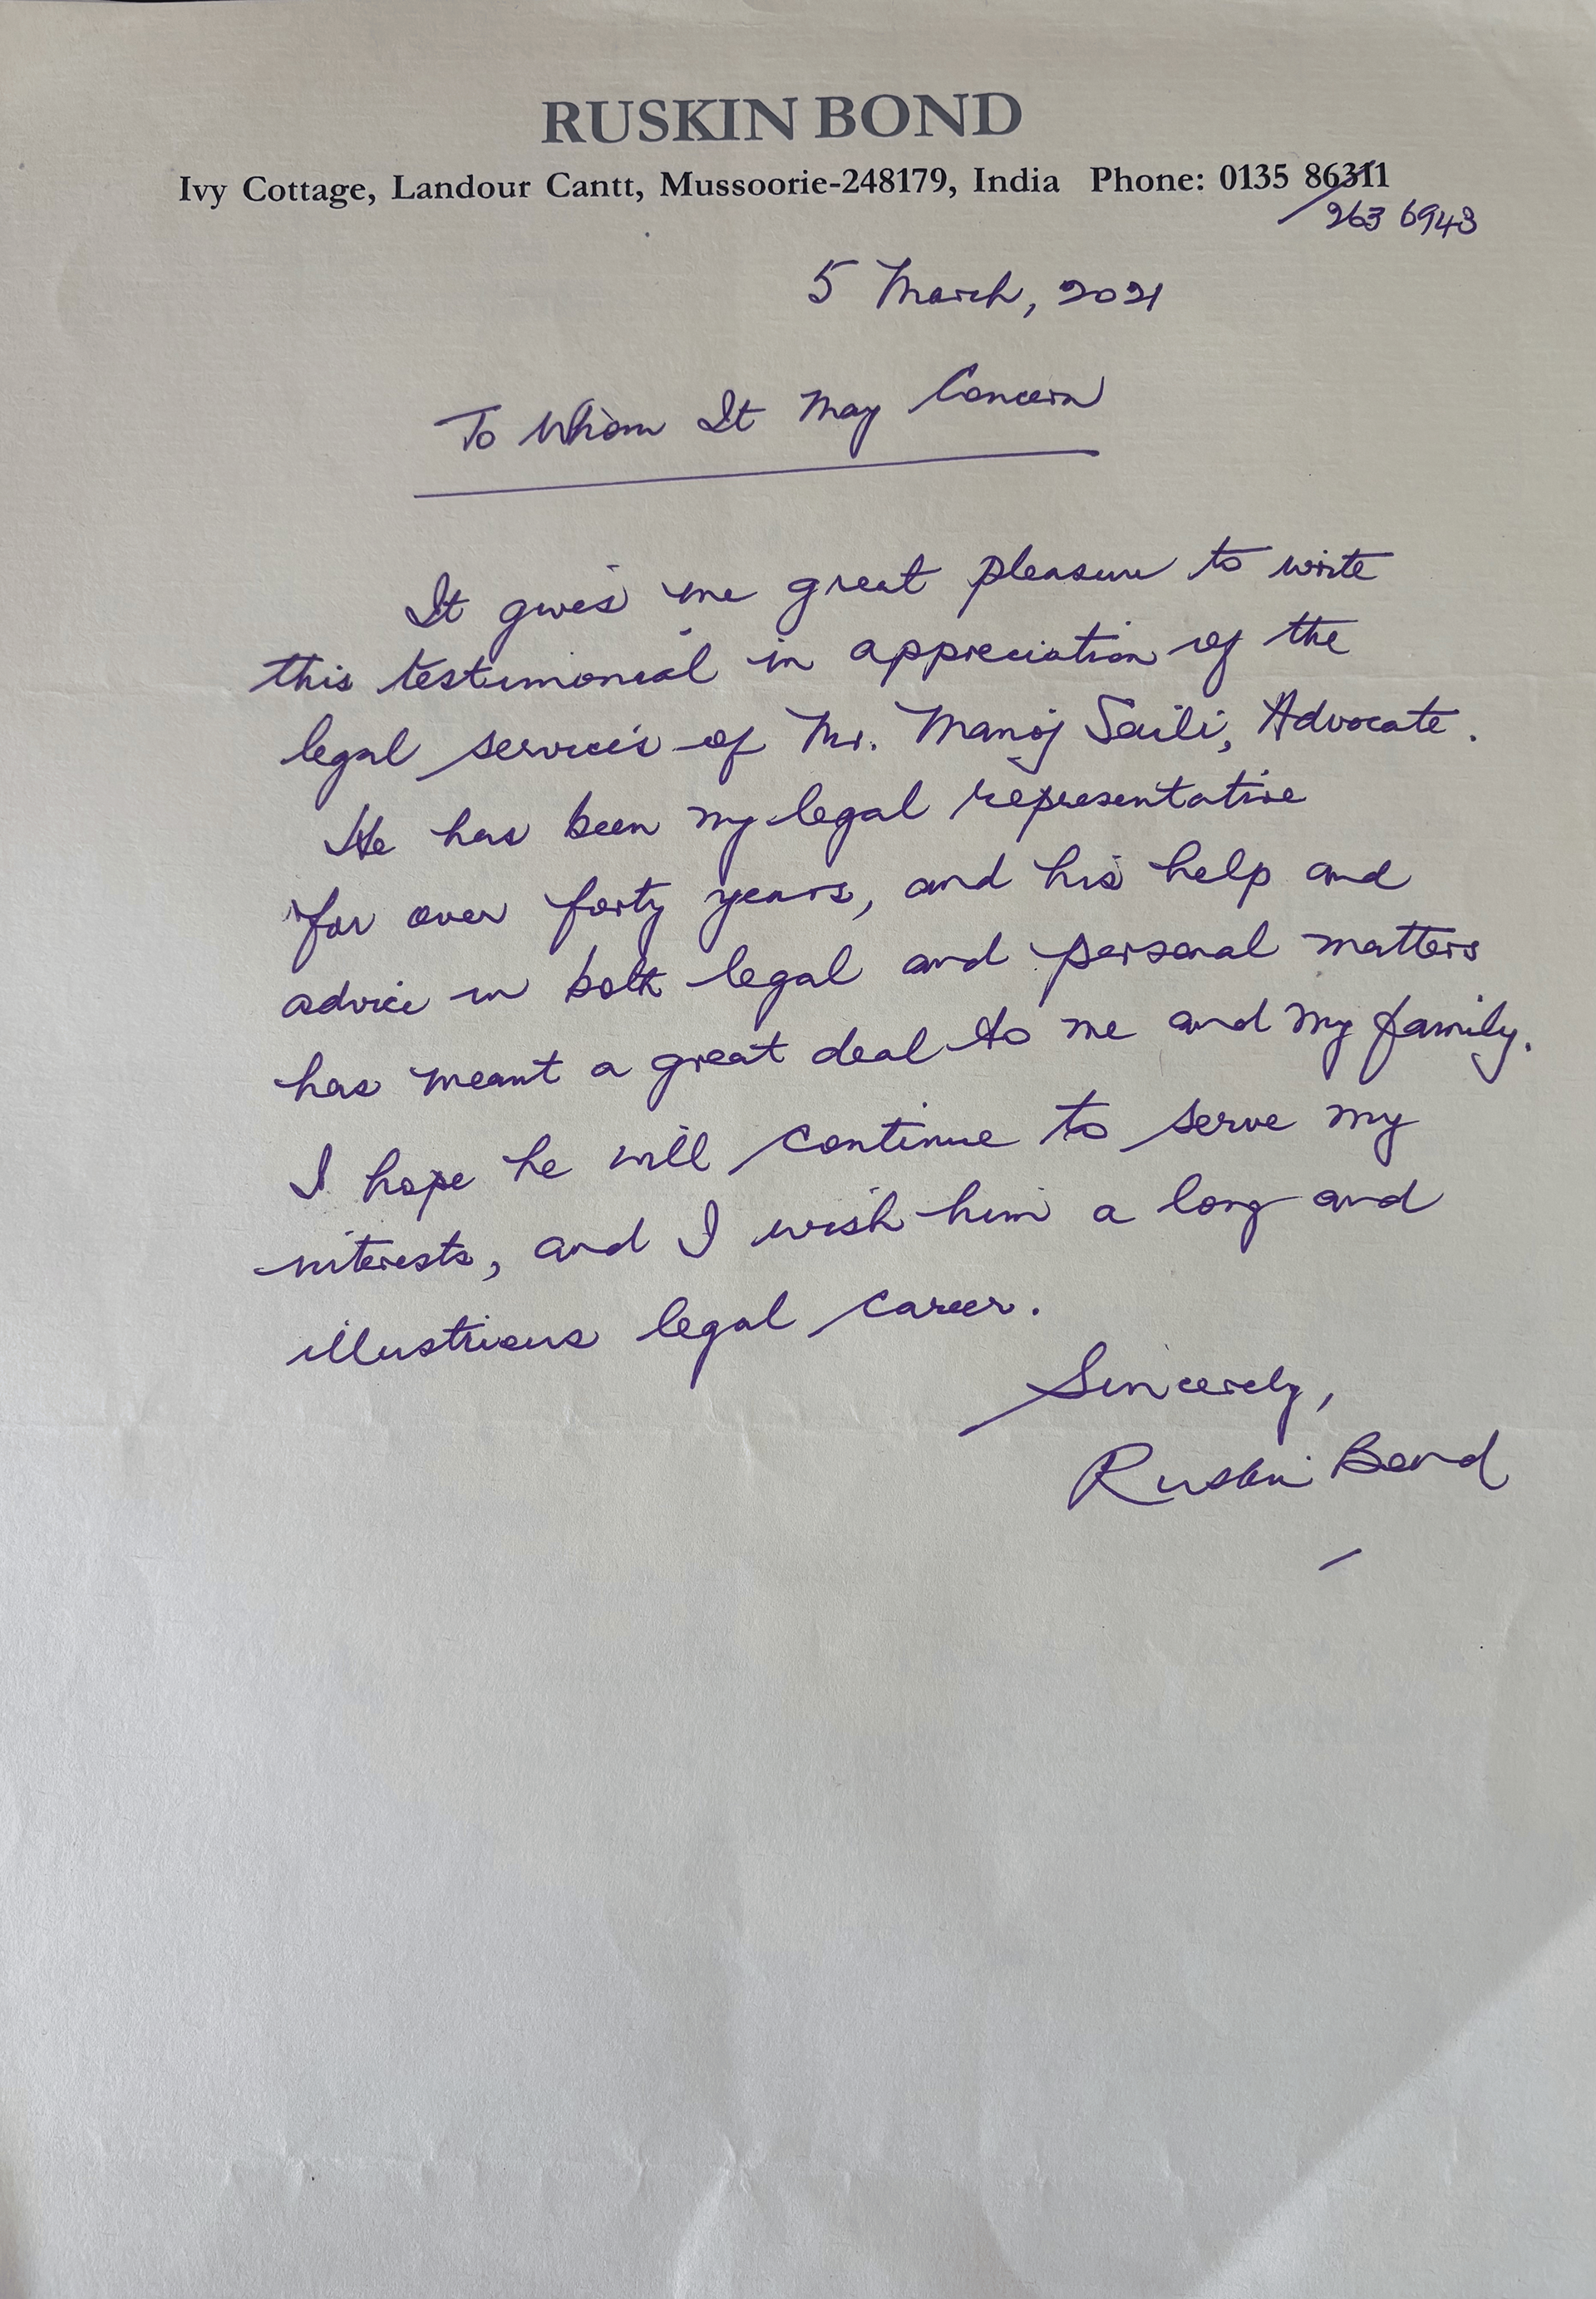 RUSKIN BOND
Ivy Cottage, Landour Cantt, Mussoorie-248179, India Phone: 0135 86311
263 6943
5 March, 2021
To Whom It May Concern
It gives me great pleasure to write
this testimonial in appreciation of the
legal services of Mr. Manoj Saili, Advocate.
He has been my legal representative
for over forty years, and his help and
advice in both legal and personal matters
has meant a great deal to me and my family.
I hope he will continue to serve my
interests, and I wish him a long and
illustrious legal career.
Sincerely,
Ruskin Bond